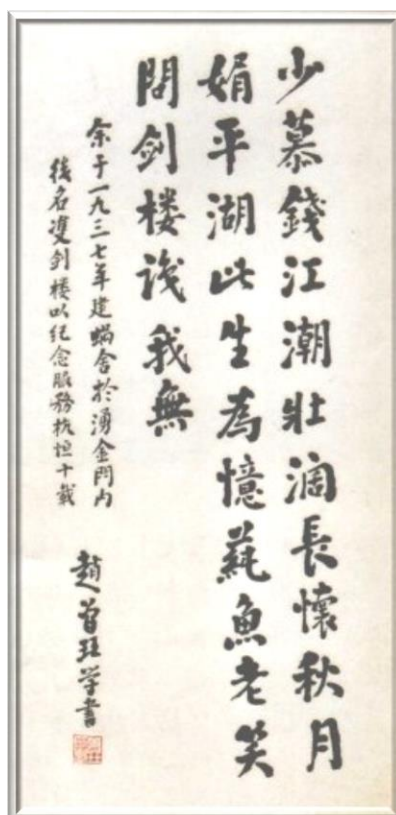 少慕錢江潮壯濶長懷秋月
娟平湖此生為憶蒓魚老笑
問剑楼識我無
余于一九三七年建蝸舍於湧金門内
後名雙剑楼以纪念服務杭垣十載
趙曾珏学書